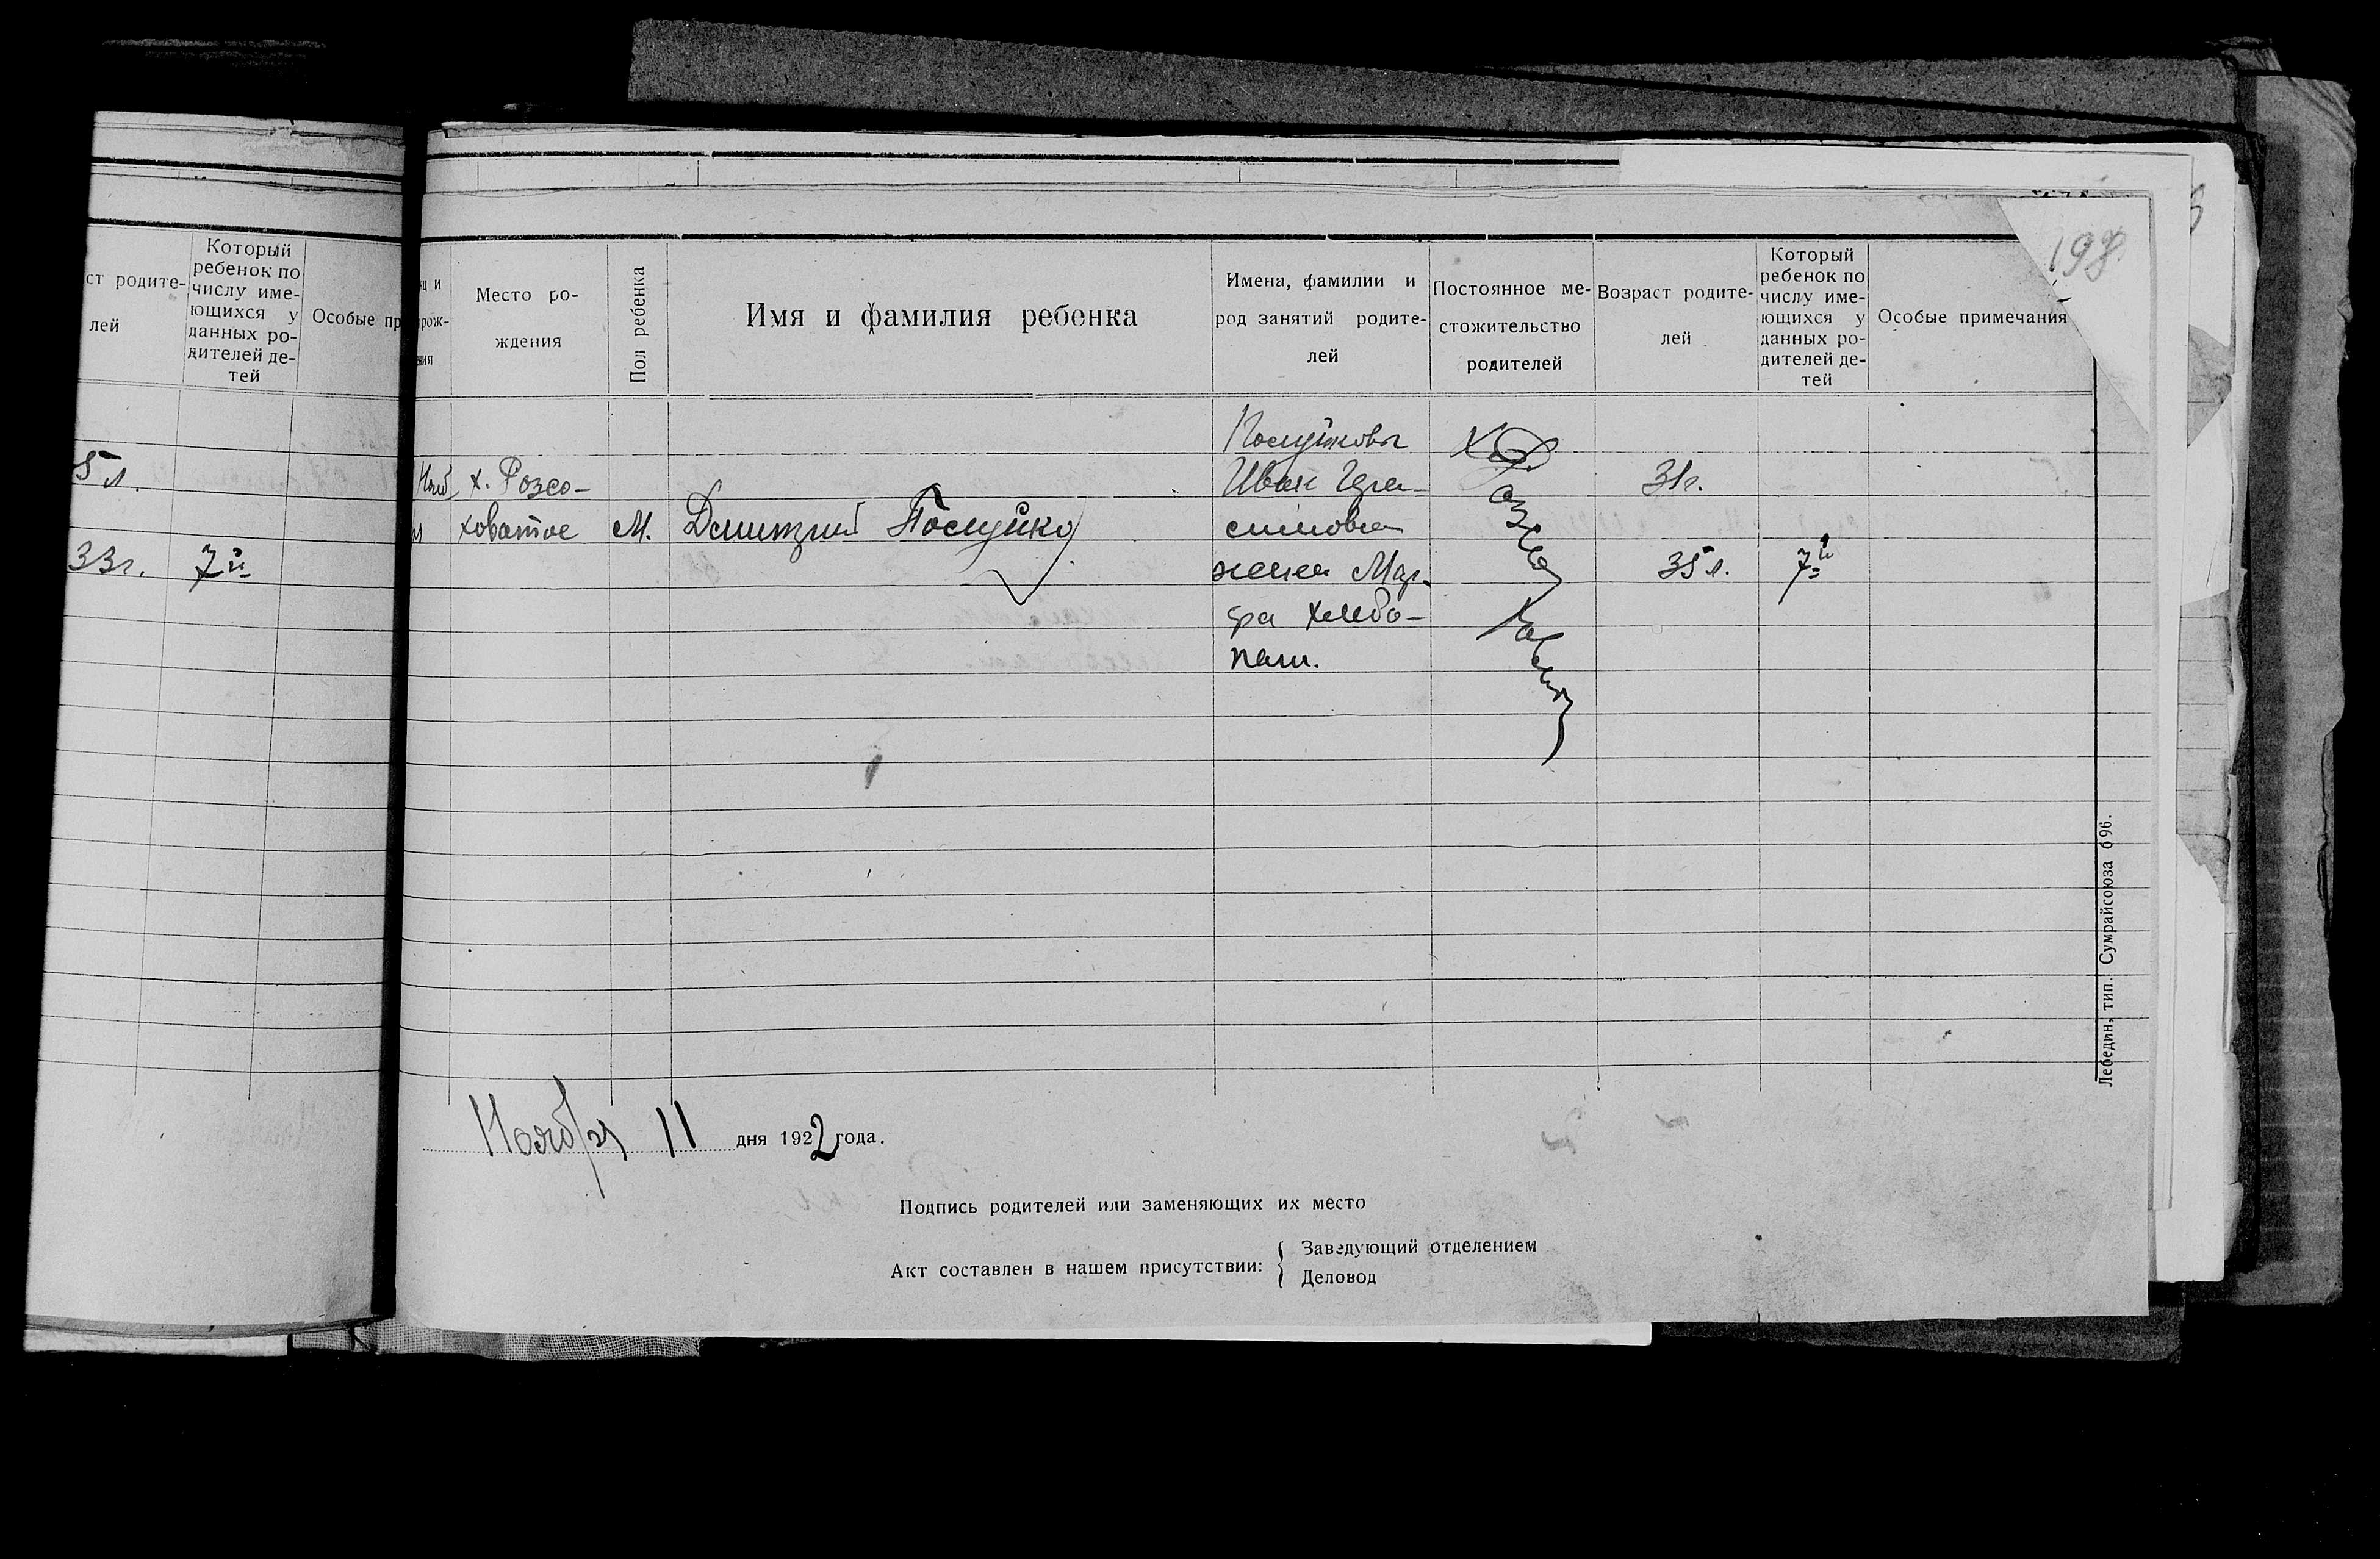 ст родите-
лей
Который
ребенок по
числу име-
ющихся у
данных ро-
дителей де-
тей
Особые пр
5 л.
33 г. 7й
198
яц и
рож-
ния
Место ро-
ждения
Пол ребенка
Имя и фамилия ребенка
Имена, фамилии и
род занятий родите-
лей
Постоянное ме-
стожительство
родителей
Возраст родите-
лей
Который
ребенок по
числу име-
ющихся у
данных ро-
дителей де-
тей
Особые примечания
Нояб х. Розсо-
ховатое М. Дмитрий
Иван Гера-
симович
жена Мар-
фа хлебо-
паш.
Хут.
Розсо
ховат
31 г.
35 л. 7й
Ноября 11 дня 1922 года.
Подпись родителей или заменяющих их место
Акт составлен в нашем присутствии: { Заведующий отделением
Деловод
Лебедин, тип. Сумрайсоюза 696.